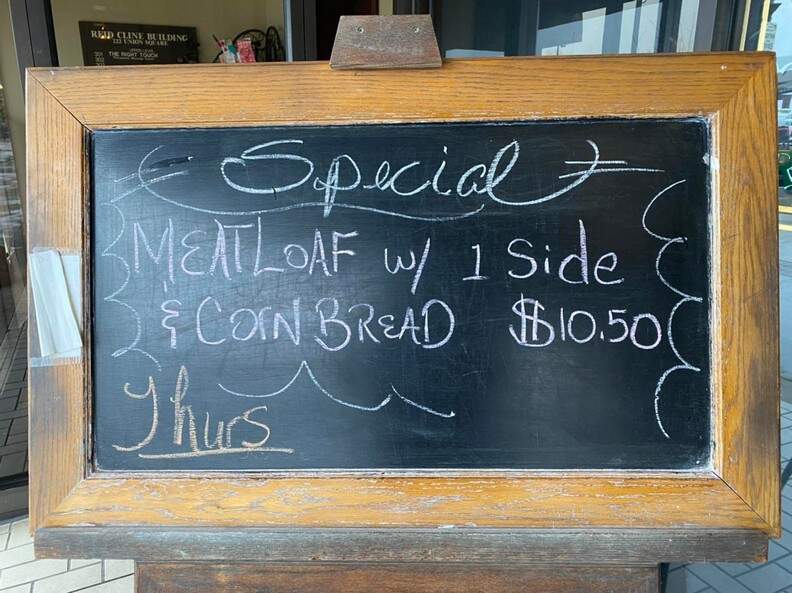 REID CLINE BUILDING
222 UNION SQUARE
THE RIGHT TOUCH
Special
MEATLOAF w/ 1 Side
& CORN BREAD $10.50
Thurs